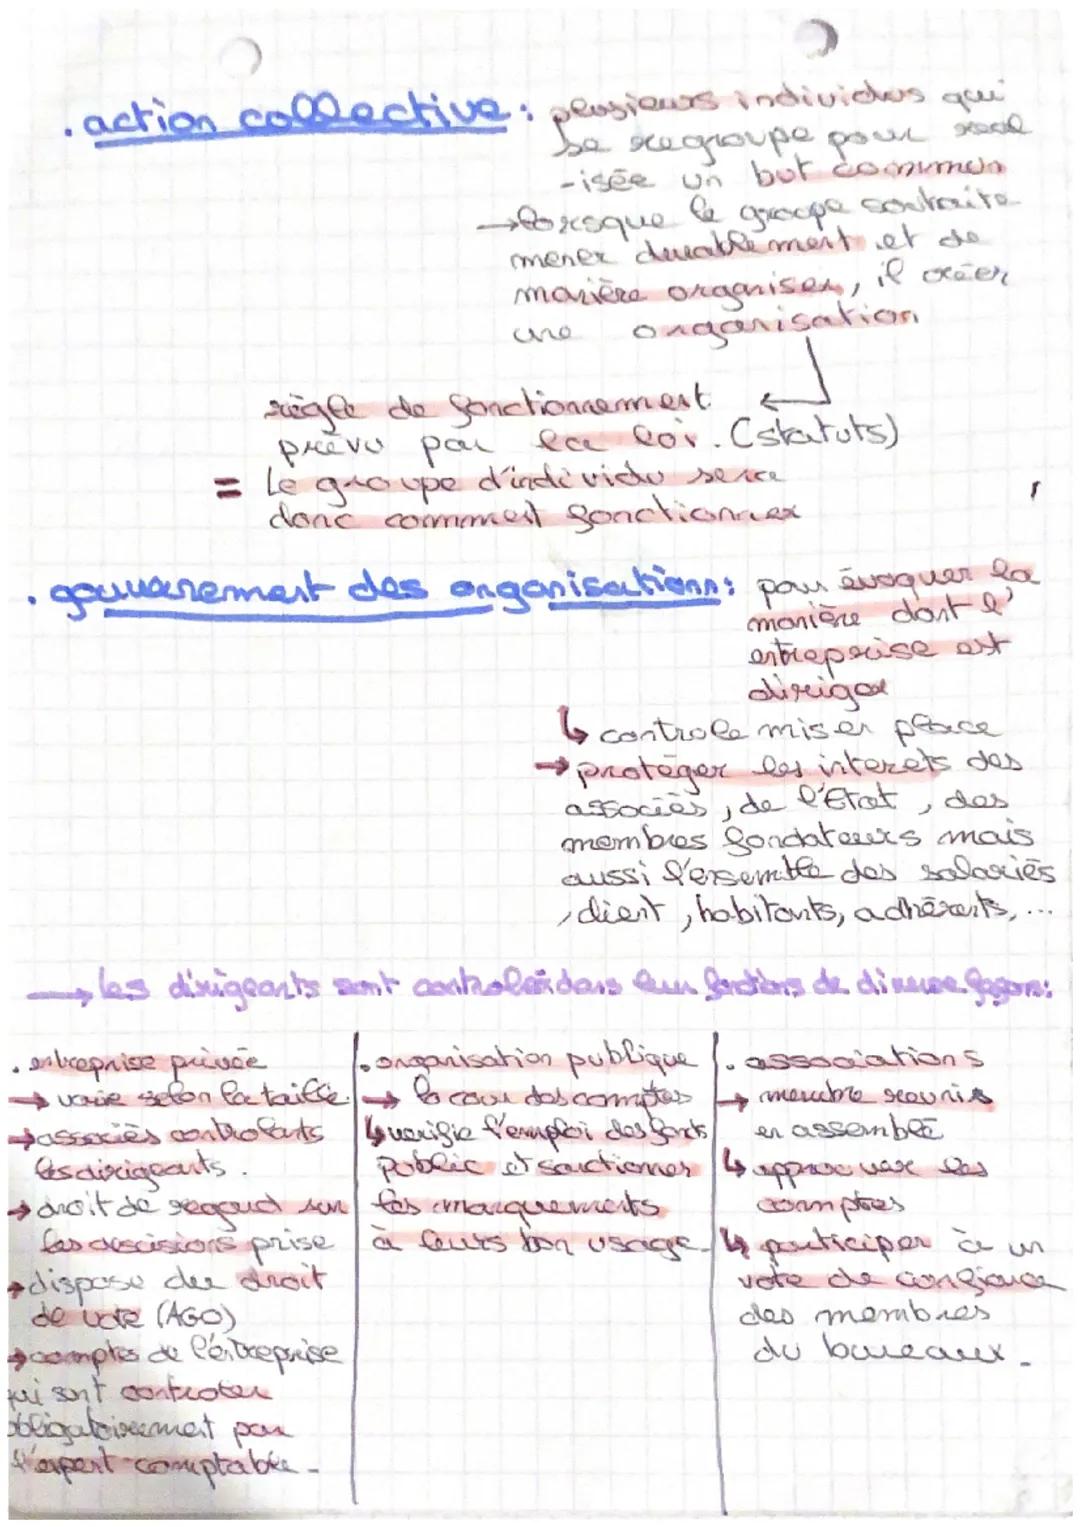 . action collective : plusieurs individus qui
se regroupe pour réal
-isée un but commun
→ lorsque le groupe souhaite
mener durablement et de
manière organiser, il créer
une organisation
règle de fonctionnement
prévu par la loi. (statuts)
= Le groupe d'individu sera
donc comment fonctionner
. gouvernement des organisations : pour évoquer la
manière dont l'
entreprise est
diriger
↳ controle mis en place
→ protéger les interets des
associés, de l'Etat, des
membres fondateurs mais
aussi l'ensemble des salariés
, client, habitants, adhérents, ...
→ les dirigeants sont controlés dans leur fonctions de diverse façons :
. entreprise privée
→ varie selon la taille.
→ associés controlants
les dirigeants.
→ droit de regard sur
les descisions prise
→ dispose du droit
de vote (AGO)
→ comptes de l'entreprise
qui sont controler
obligatoirement par
l'expert-comptable.
. organisation publique
→ la cour des comptes
↳ verifie l'emploi des fonds
public et sanctionner
les manquements
à leurs bon usage.
. associations
→ membre reunis
en assemblé
↳ approuver les
comptes
↳ participer à un
vote de confiance
des membres
du bureaux.